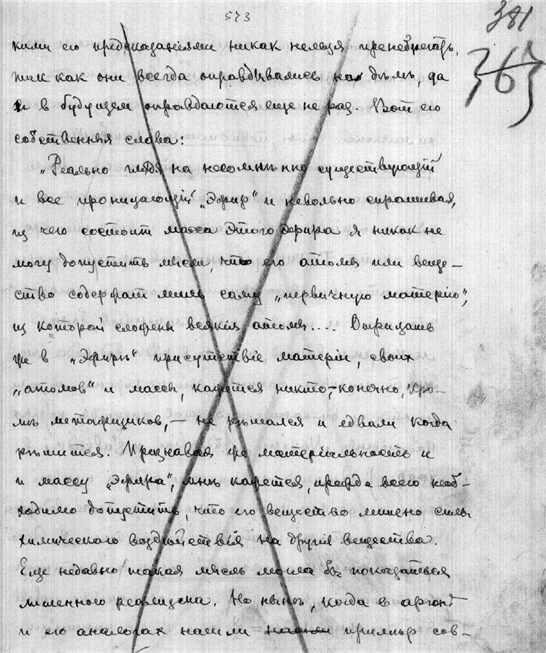 573
381
363
кими его предсказаніями никак нельзя пренебрегать,
так как они всегда оправдывались на дѣлѣ, да
и в будущем оправдаются еще не раз. Вот его
собственныя слова:
„Реально глядя на несомнѣнно существующій
и все проницающій „Эфир“ и невольно спрашивая,
из чего состоит масса этого эфира я никак не
могу допустить мысли, что его атомы или веще-
ство содержат лишь саму „первичную матерію“,
из которой сложены всякія атомы.... Отрицать
же в „Эфирѣ“ присутствіе матеріи, своих
„атомов“ и массы, кажется никто,-конечно, кро-
мѣ метафизиков, — не рѣшался и едвали когда
рѣшится. Признавая же матеріальность и
и массу „эфира“, мнѣ кажется, прежде всего необ-
ходимо допустить, что его вещество лишено силы
химическаго воздѣйствія на другія вещества.
Еще недавно такая мысль могла бы показаться
лишенного реализма. Но нынѣ, когда в аргонѣ
и его аналогах нашли примѣр сов-